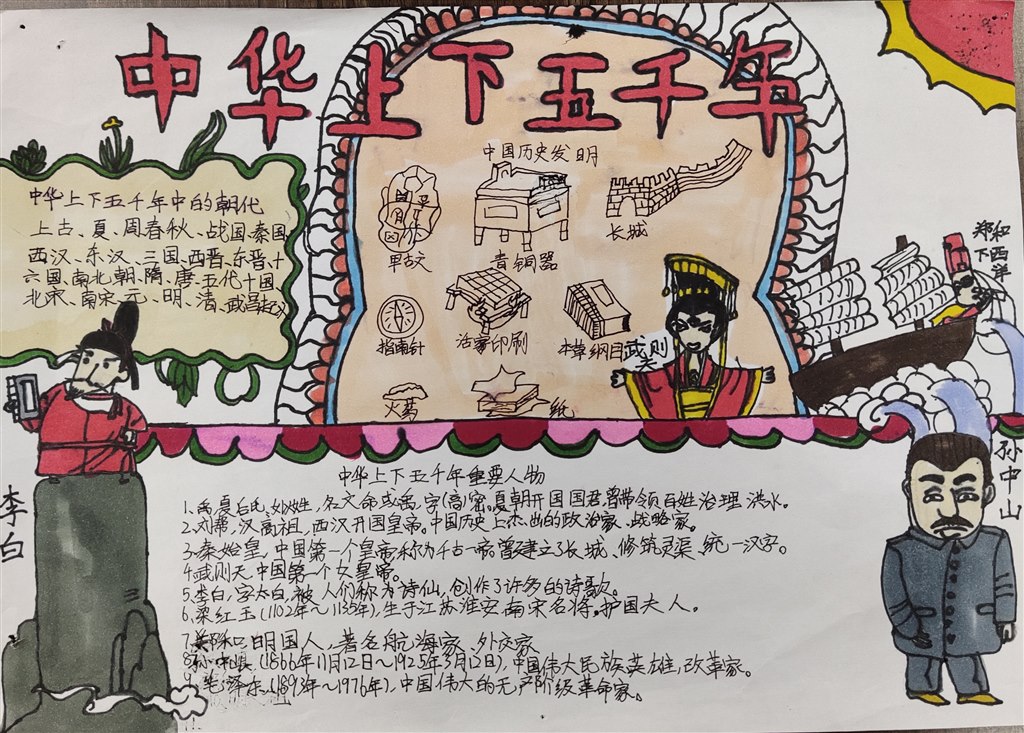 中华上下五千年
中华上下五千年中的朝代
上古、夏、周春秋、战国秦国
西汉、东汉、三国、西晋、东晋、十
六国、南北朝、隋、唐、五代十国、
北宋、南宋、元、明、清、武昌起义
中国历史发明
甲古文
青铜器
长城
指南针
活字印刷
本草纲目
火药
纸
武则天
郑和
下西洋
李白
孙中山
中华上下五千年重要人物
1、禹,夏后氏,姒姓,名文命或禹,字(高)密。夏朝开国国君,曾带领百姓治理洪水。
2、刘帮,汉高祖,西汉开国皇帝。中国历史上杰出的政治家、战略家。
3、秦始皇,中国第一个皇帝称为千古一帝曾建立了长城、修筑灵渠、统一汉字。
4、武则天,中国第一个女皇帝。
5、李白,字太白,被人们称为诗仙,创作了许多的诗歌。
6、梁红玉(1102年~1135年),生于江苏淮安,南宋名将。护国夫人。
7、郑和:明国人,著名航海家、外交家
8、孙中山,(1866年11月12日~1925年3月12日),中国伟大民族英雄,改革家。
9、毛泽东(1893年~1976年),中国伟大的无产阶级革命家。